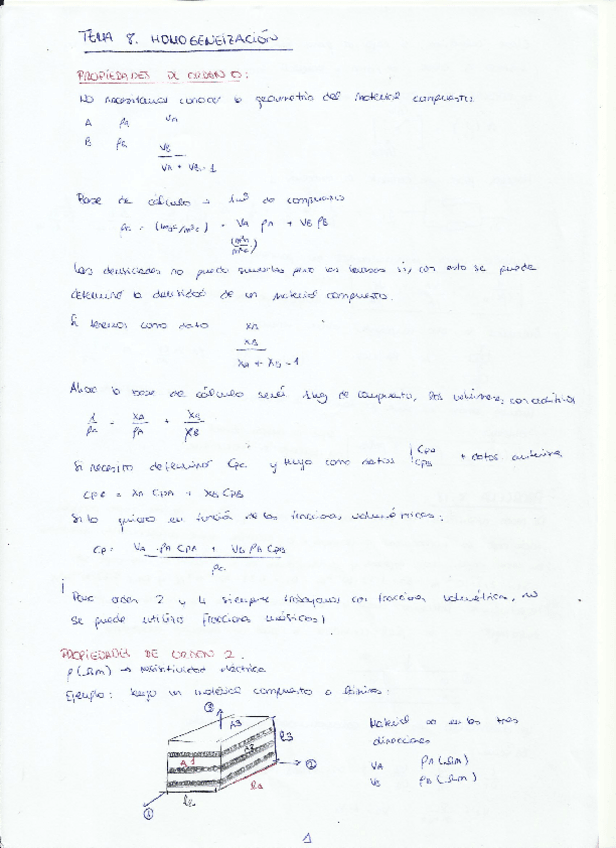 TEMA 8. HOMOGENEIZACIÓN
PROPIEDADES DE ORDEN 0:
No necesitamos conocer la geometría del material compuesto:
A ρA VA
B ρB VB
VA + VB = 1
Base de cálculo → 1m³ de compuesto
ρc = (kgc/m³c) = VA ρA + VB ρB
Las densidades no puedo sumarlas pero las masas si, con esto se puede
determinar la densidad de un material compuesto.
Si tenemos como dato XA
XB
XA + XB = 1
Ahora la base de cálculo será 1kg de compuesto, los volúmenes, son aditivos
1/ρc = XA/ρA + XB/ρB
Si necesito determinar Cpc y tengo como datos CpA CpB + datos anteriores
Cpc = XA CpA + XB CpB
Si lo quiero en función de las fracciones volumétricas:
Cp = VA · ρA CpA + VB ρA CpB
ρc
¡ Para orden 2 y 4 siempre trabajamos con fracciones volumétricas, no
se puede utilizar fracciones másicas!
PROPIEDADES DE ORDEN 2.
ρ (Ω.m) → resistividad eléctrica
Ejemplo: tengo un material compuesto a láminas:
③
A3
l3
A1
A2
②
①
l2
Material ∞ en las tres
direcciones
VA ρA (Ω.m)
VB ρB (Ω.m)
1